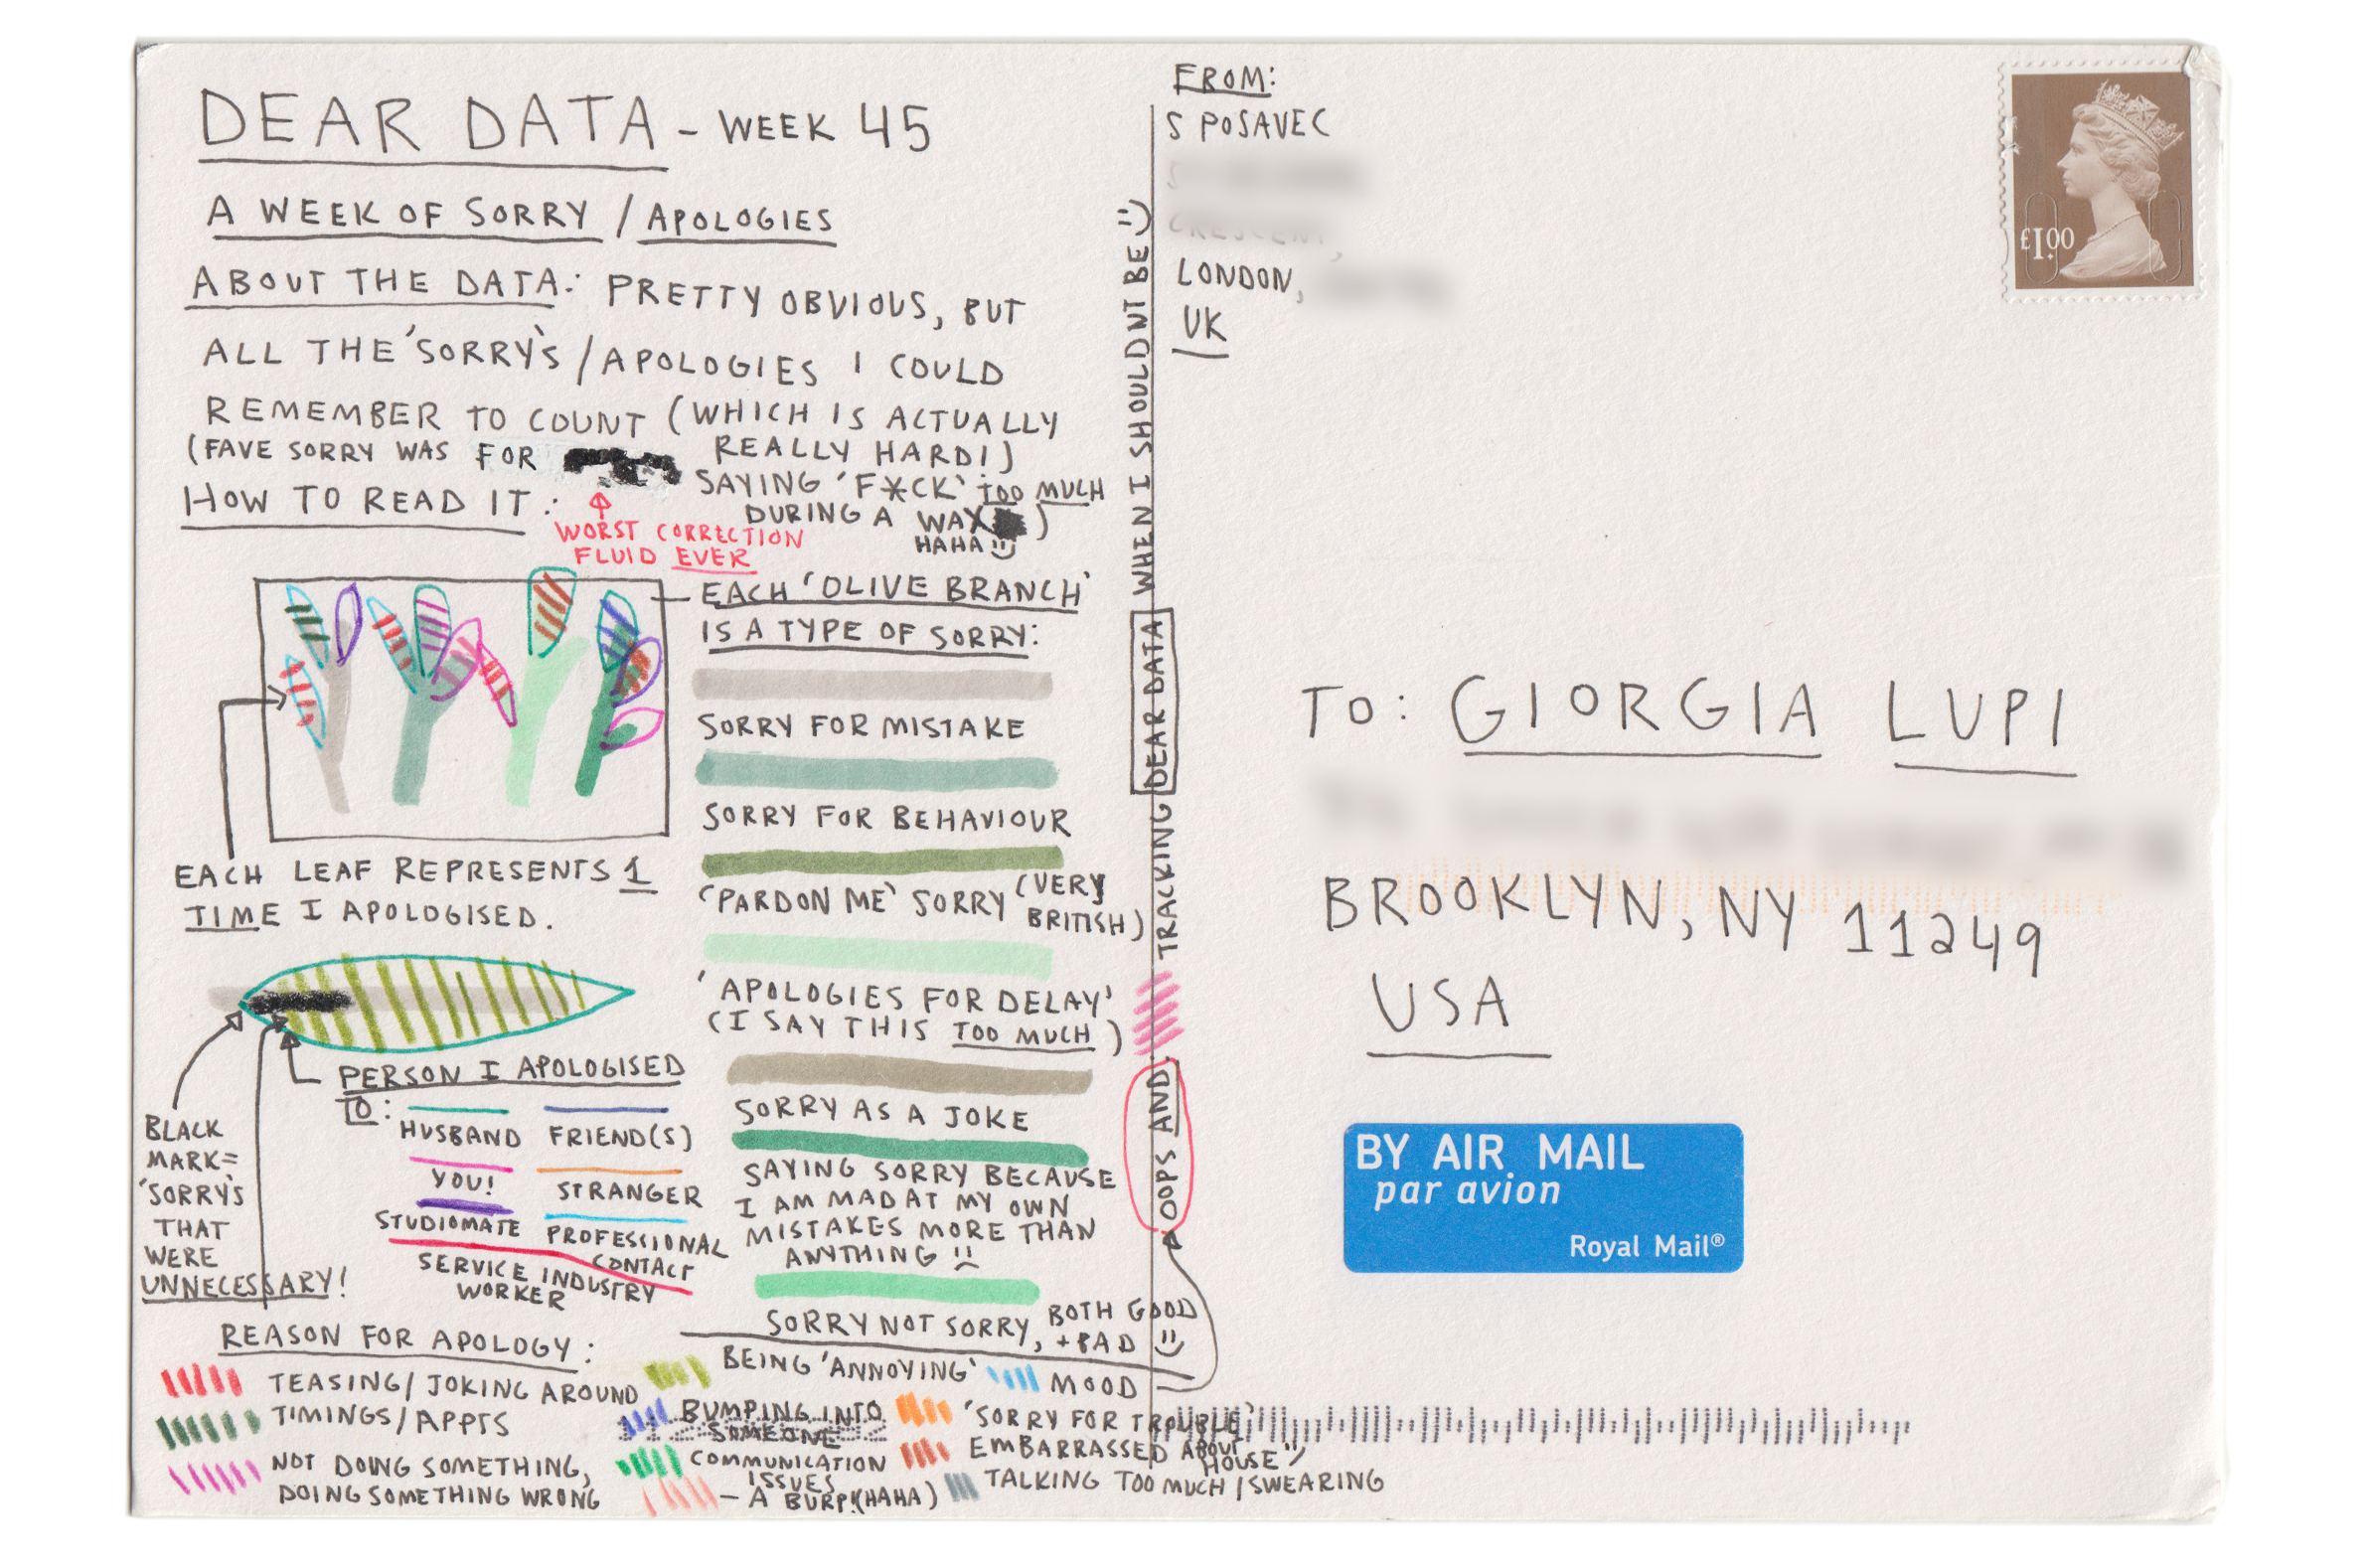 DEAR DATA - WEEK 45
A WEEK OF SORRY / APOLOGIES
ABOUT THE DATA: PRETTY OBVIOUS, BUT
ALL THE 'SORRY'S / APOLOGIES I COULD
REMEMBER TO COUNT (WHICH IS ACTUALLY
REALLY HARD!)
(FAVE SORRY WAS FOR
SAYING 'F*CK' TOO MUCH
DURING A WAX )
HAHA
WORST CORRECTION
FLUID EVER
HOW TO READ IT:
EACH 'OLIVE BRANCH'
IS A TYPE OF SORRY:
SORRY FOR MISTAKE
SORRY FOR BEHAVIOUR
'PARDON ME' SORRY (VERY
BRITISH)
'APOLOGIES FOR DELAY'
(I SAY THIS TOO MUCH)
SORRY AS A JOKE
SAYING SORRY BECAUSE
I AM MAD AT MY OWN
MISTAKES MORE THAN
ANYTHING
SORRY NOT SORRY, BOTH GOOD
+ BAD
EACH LEAF REPRESENTS 1
TIME I APOLOGISED.
PERSON I APOLOGISED
TO:
HUSBAND
FRIEND(S)
YOU!
STRANGER
STUDIOMATE
PROFESSIONAL
CONTACT
SERVICE INDUSTRY
WORKER
BLACK
MARK =
'SORRY'S
THAT
WERE
UNNECESSARY!
REASON FOR APOLOGY:
TEASING / JOKING AROUND
TIMINGS / APPTS
NOT DOING SOMETHING,
DOING SOMETHING WRONG
BEING 'ANNOYING'
BUMPING INTO
SOMEONE
COMMUNICATION
ISSUES
- A BURP! (HAHA)
MOOD
'SORRY FOR TROUBLE'
EMBARRASSED ABOUT
HOUSE"
TALKING TOO MUCH / SWEARING
OOPS AND TRACKING DEAR DATA WHEN I SHOULDNT BE :)
FROM:
S POSAVEC
CRESCENT,
LONDON,
UK
£1.00
TO: GIORGIA LUPI
BROOKLYN, NY 11249
USA
BY AIR MAIL
par avion
Royal Mail®